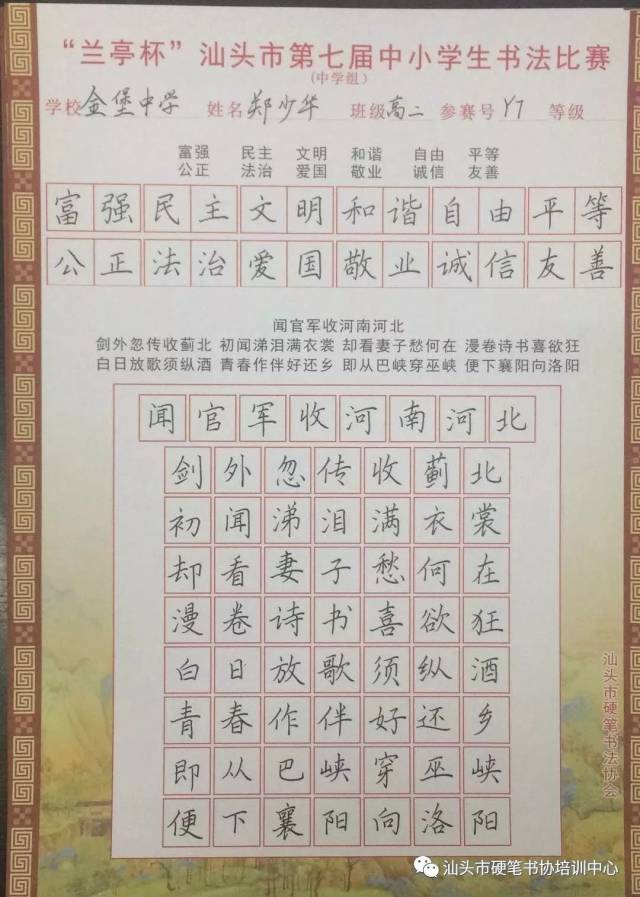 “兰亭杯”汕头市第七届中小学生书法比赛
(中学组)
学校金堡中学 姓名郑少华 班级高二 参赛号Y7 等级
富强 民主 文明 和谐 自由 平等
公正 法治 爱国 敬业 诚信 友善
富强民主文明和谐自由平等
公正法治爱国敬业诚信友善
闻官军收河南河北
剑外忽传收蓟北 初闻涕泪满衣裳 却看妻子愁何在 漫卷诗书喜欲狂
白日放歌须纵酒 青春作伴好还乡 即从巴峡穿巫峡 便下襄阳向洛阳
闻官军收河南河北
剑外忽传收蓟北
初闻涕泪满衣裳
却看妻子愁何在
漫卷诗书喜欲狂
白日放歌须纵酒
青春作伴好还乡
即从巴峡穿巫峡
便下襄阳向洛阳
汕头市硬笔书法协会
汕头市硬笔书协培训中心